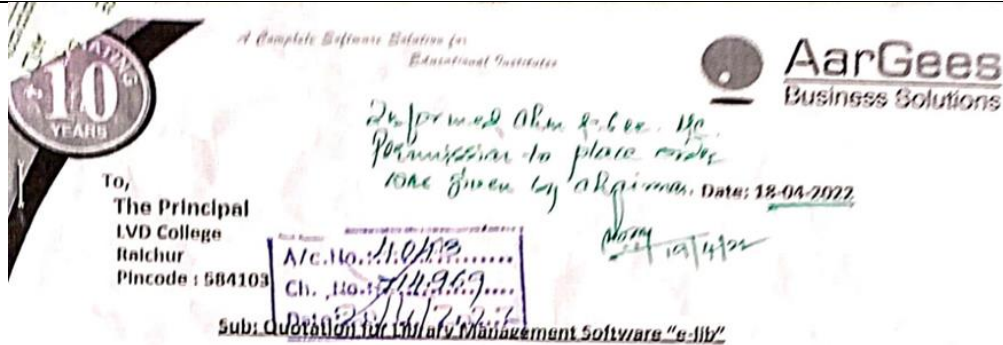 A Complete Software Solution for
Educational Institutes
AarGees
Business Solutions
10
YEARS
Informed
Permission to place order
given by
Date: 18-04-2022
19/4/22
To,
The Principal
LVD College
Raichur
Pincode : 584103
A/c.No.:
Ch. No.:
Sub: Quotation for Library Management Software "e-lib"